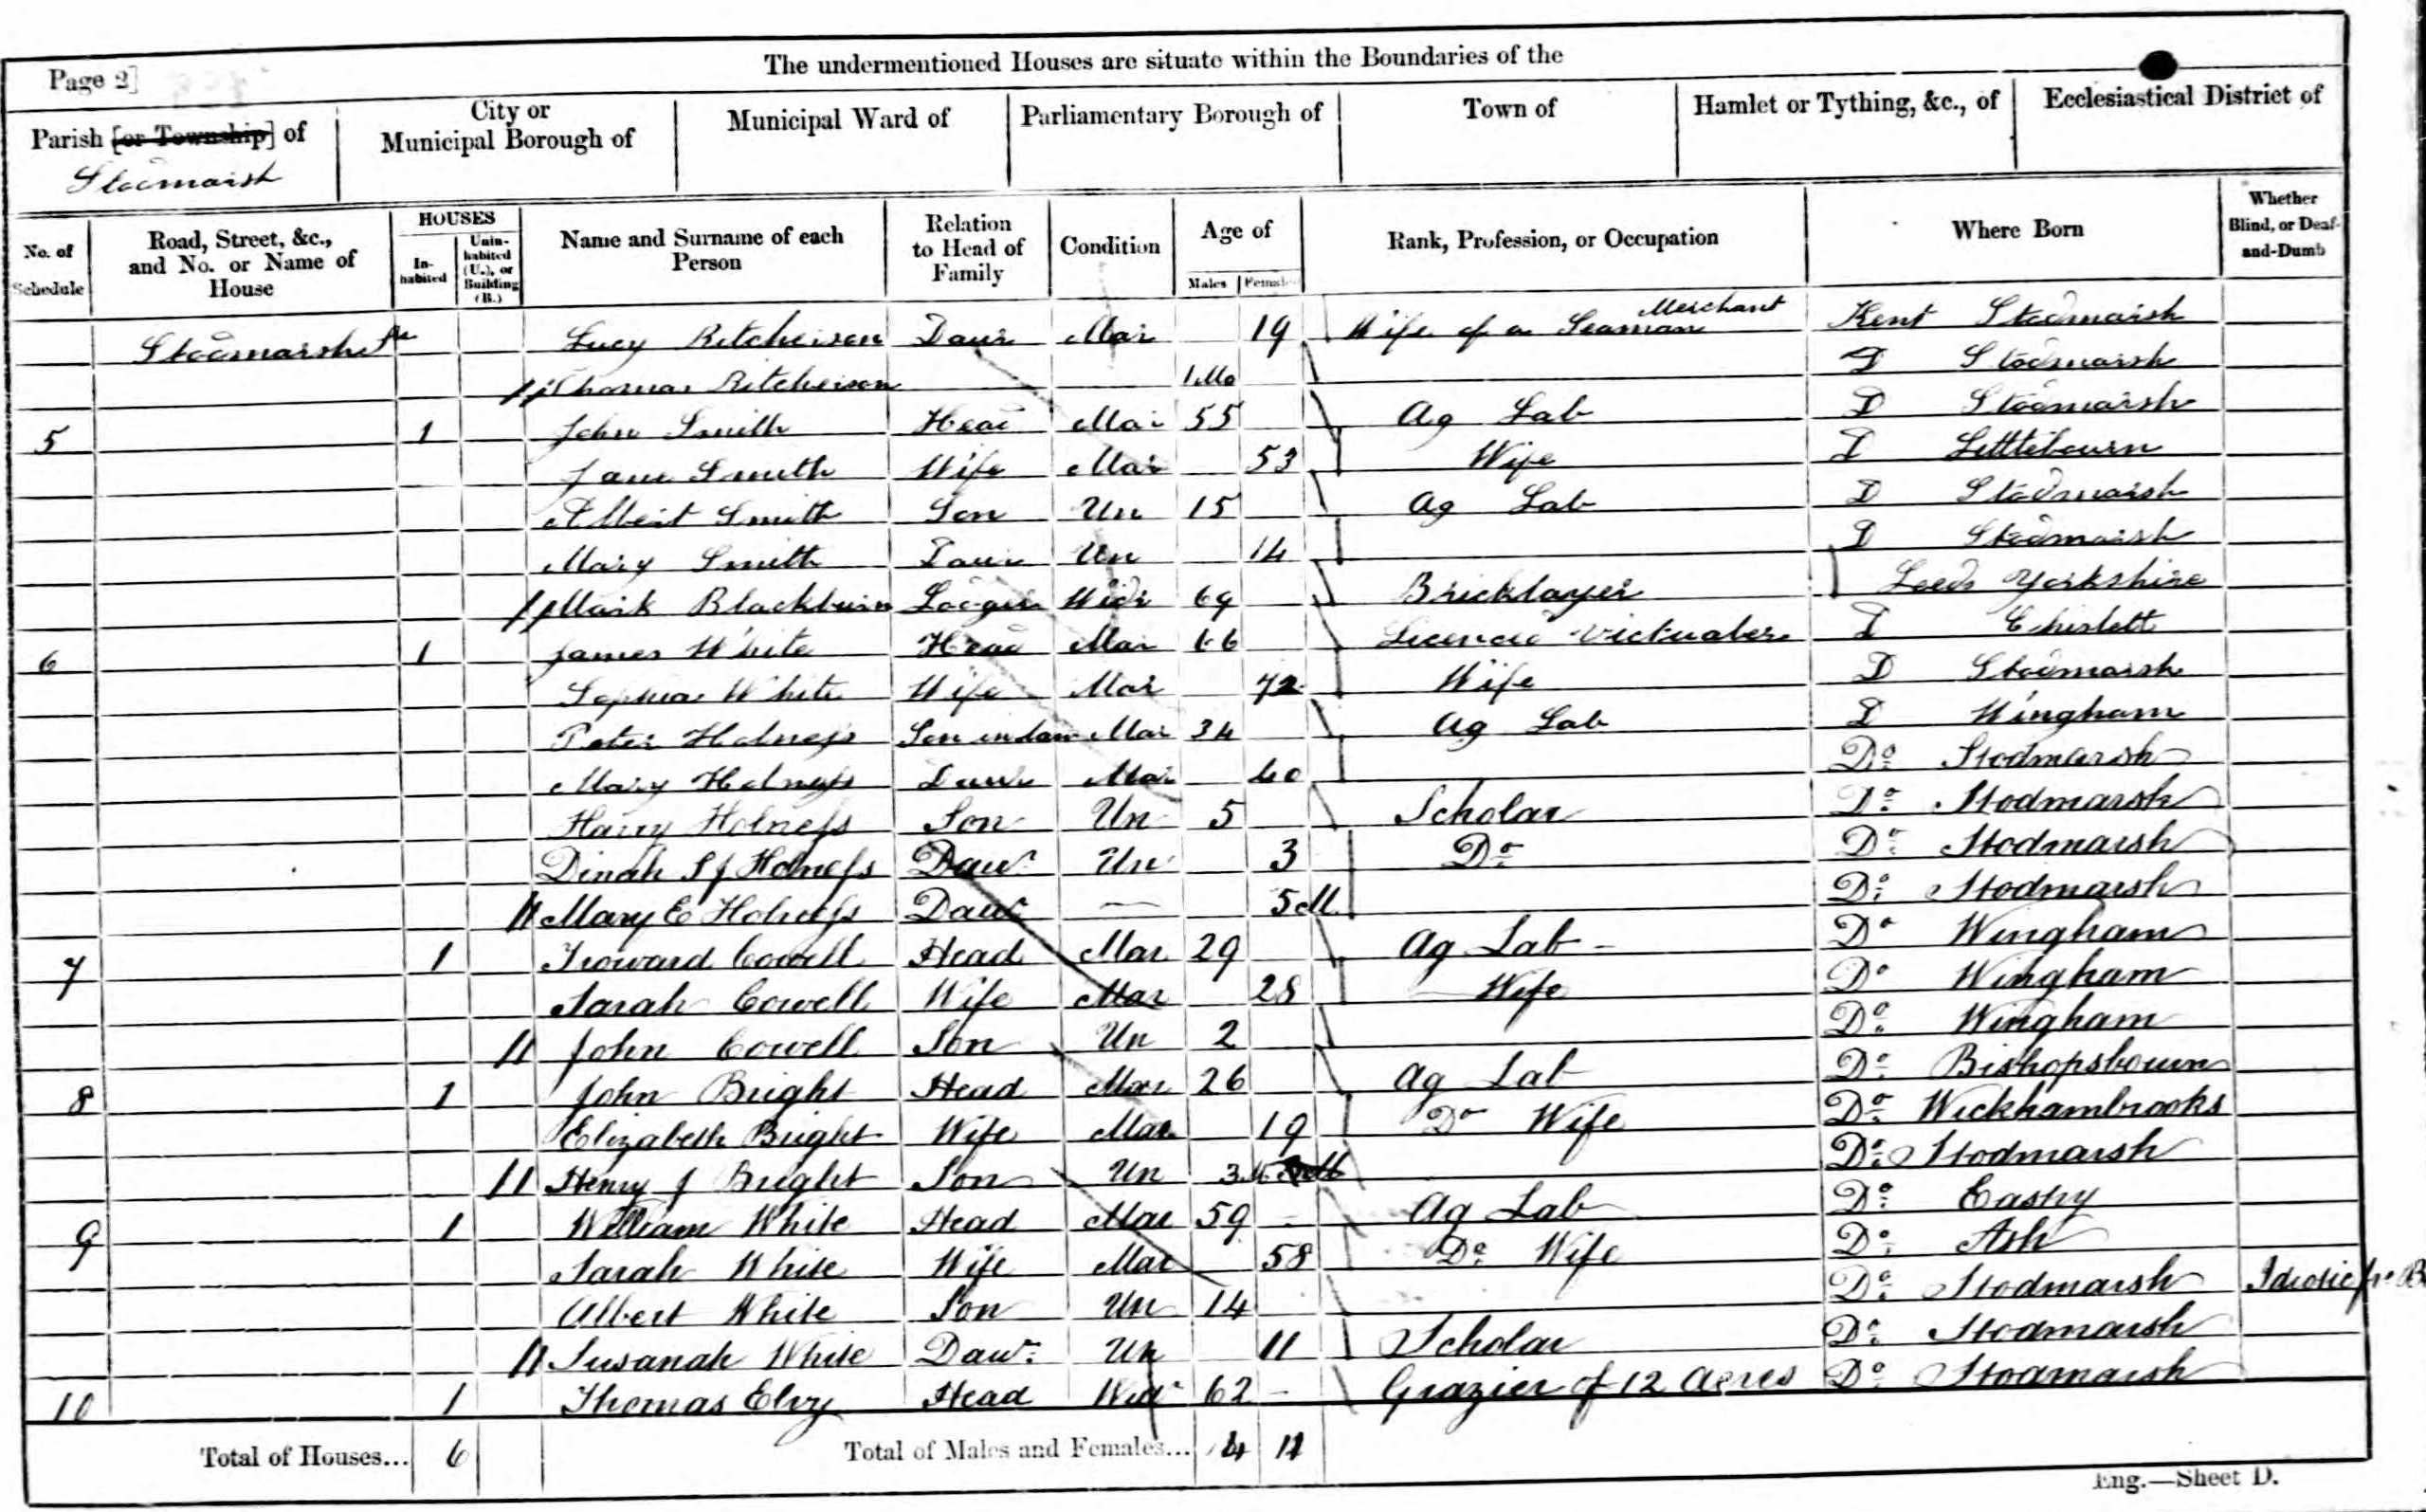 The undermentioned Houses are situate within the Boundaries of the
Page 2]
Parish [or Township] of City or Municipal Borough of Municipal Ward of Parliamentary Borough of Town of Hamlet or Tything, &c., of Ecclesiastical District of
Stodmarsh
No. of Schedule Road, Street, &c., and No. or Name of House HOUSES In-habited Unin-habited (U.), or Building (B.) Name and Surname of each Person Relation to Head of Family Condition Age of Males Females Rank, Profession, or Occupation Where Born Whether Blind, or Deaf-and-Dumb
Stodmarsh Lucy Ritcheison Daur Mar 19 Wife of a Merchant Seaman Kent Stodmarsh
Thomas Ritcheison 1 Mo D Stodmarsh
5 1 John Smith Head Mar 55 Ag Lab D Stodmarsh
Jane Smith Wife Mar 53 Wife D Littlebourn
Albert Smith Son Un 15 Ag Lab D Stodmarsh
Mary Smith Daur Un 14 D Stodmarsh
Mark Blackburn Lodger Widr 69 Bricklayer Leeds Yorkshire
6 1 James White Head Mar 66 Licencd Victualer D Chislett
Sophia White Wife Mar 72 Wife D Stodmarsh
Peter Holness Son in Law Mar 34 Ag Lab D Wingham
Mary Holness Daur Mar 40 Do Stodmarsh
Harry Holness Son Un 5 Scholar Do Stodmarsh
Dinah S J Holness Daur Un 3 Do Do Stodmarsh
Mary E Holness Daur — 5 M Do Stodmarsh
7 1 Troward Cowell Head Mar 29 Ag Lab Do Wingham
Sarah Cowell Wife Mar 28 Wife Do Wingham
John Cowell Son Un 2 Do Wingham
8 1 John Bright Head Mar 26 Ag Lab Do Bishopsbourn
Elizabeth Bright Wife Mar 19 Do Wife Do Wickhambrooks
Henry J Bright Son Un 3 M Do Stodmarsh
9 1 William White Head Mar 59 Ag Lab Do Eastry
Sarah White Wife Mar 58 Do Wife Do Ash
Albert White Son Un 14 Do Stodmarsh Idiotic
Susanah White Daur Un 11 Scholar Do Stodmarsh
10 1 Thomas Elvy Head Widr 62 Grazier of 12 Acres Do Stodmarsh
Total of Houses... 6 Total of Males and Females... 14 11
Eng.—Sheet D.